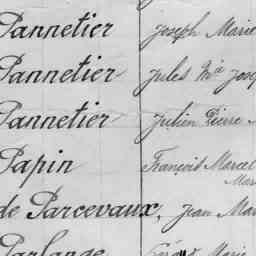 Pannetier Joseph Marie
Pannetier Jules Mie Josep
Pannetier Julien Pierre
Papin François Marcel
Mar
de Parcevaux, Jean Mar
Parlange Marie